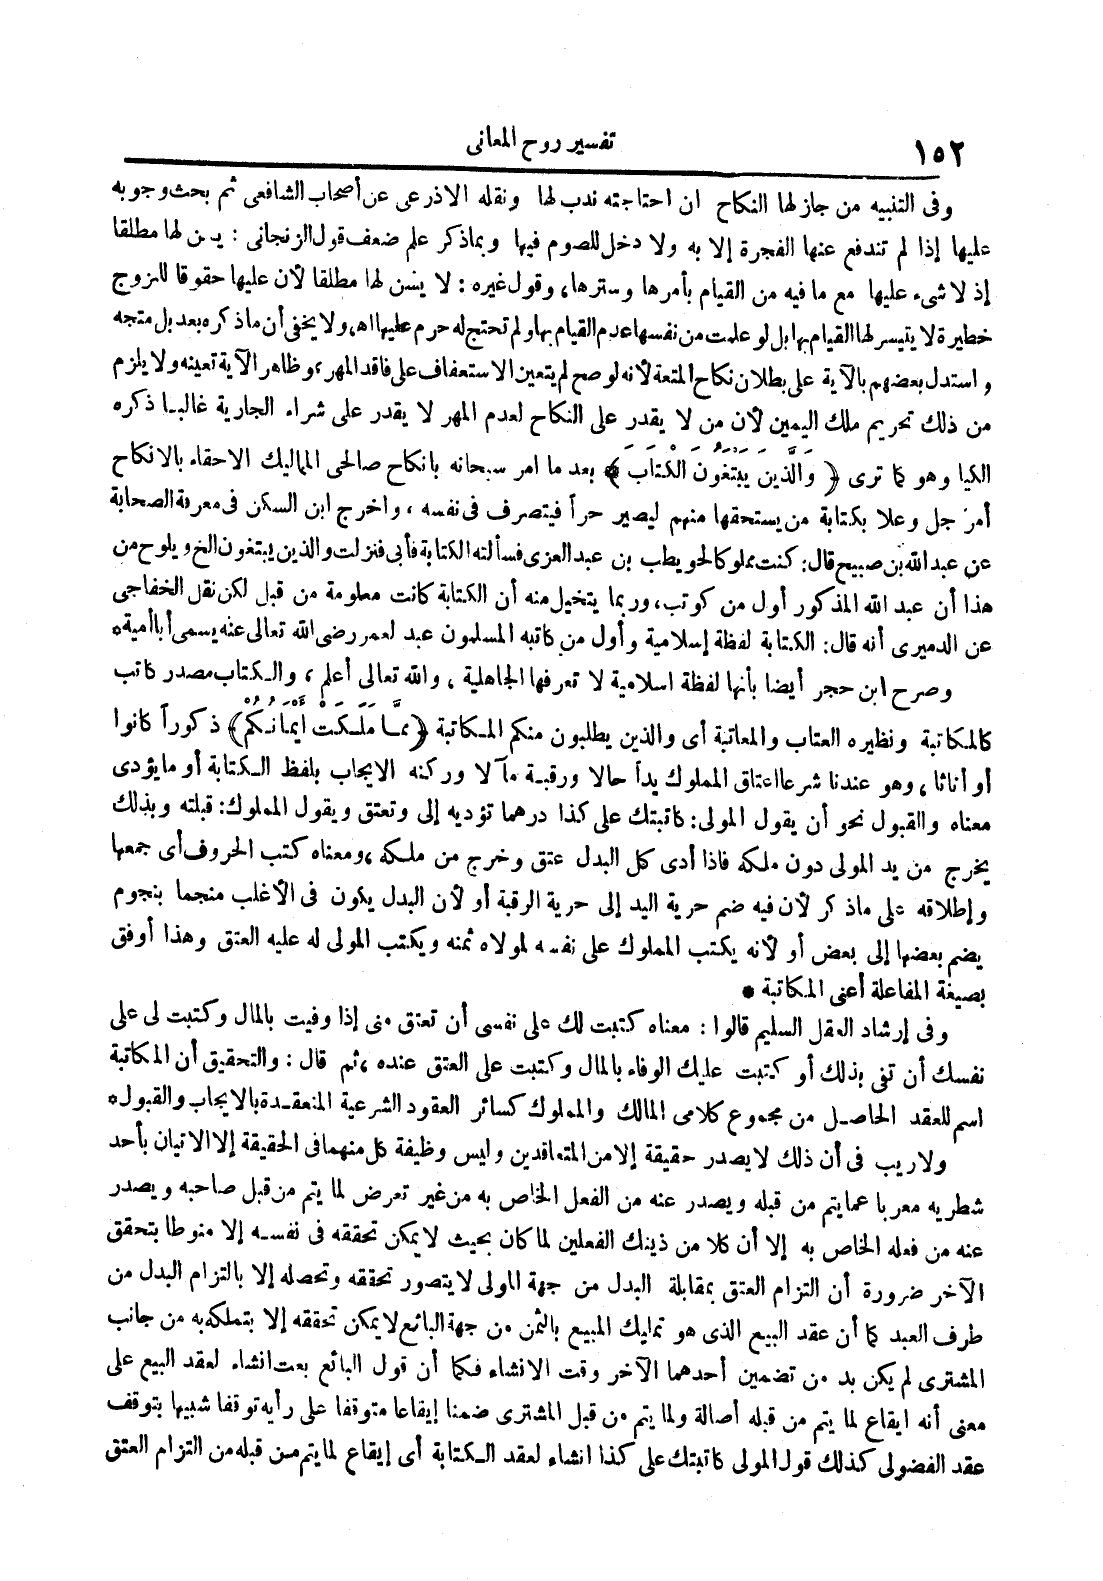 ١٥٢
تفسير روح المعانى
وفى التنبيه من جاز لها النكاح ان احتاجته ندب لها ونقله الاذرعى عن أصحاب الشافعى ثم بحث وجوبه
عليها إذا لم تندفع عنها الفجرة إلا به ولا دخل للصوم فيها وبماذكر علم ضعف قول الزنجانى : يسن لها مطلقا
إذ لاشىء عليها مع ما فيه من القيام بأمرها وسترها، وقول غيره : لا يسن لها مطلقا لأن عليها حقوقا للزوج
خطيرة لا يتيسر لها القيام بها بل لو علمت من نفسها عدم القيام بها ولم تحتج له حرم عليها اه، ولا يخفى أن ماذكره بعد بل متجه
واستدل بعضهم بالآية على بطلان نكاح المتعة لأنه لوصح لم يتعين الاستعفاف على فاقد المهر، وظاهر الآية تعينه ولا يلزم
من ذلك تحريم ملك اليمين لأن من لا يقدر على النكاح لعدم المهر لا يقدر على شراء الجارية غالبا ذكره
الكيا وهو كما ترى ﴿ وَالَّذينَ يَبْتَغُونَ الْكتَابَ ﴾ بعد ما امر سبحانه بانكاح صالحى المماليك الاحقاء بالانكاح
أمر جل وعلا بكتابة من يستحقها منهم ليصير حراً فيتصرف فى نفسه ، واخرج ابن السكن فى معرفة الصحابة
عن عبد الله بن صبيح قال: كنت مملوكا لحويطب بن عبد العزى فسألته الكتابة فأبى فنزلت والذين يبتغون الخ ويلوح من
هذا أن عبد الله المذكور أول من كوتب، وربما يتخيل منه أن الكتابة كانت معلومة من قبل لكن نقل الخفاجى
عن الدميرى أنه قال: الكتابة لفظة إسلامية وأول من كاتبه المسلمون عبد لعمر رضى الله تعالى عنه يسمى أبا أمية*
وصرح ابن حجر أيضا بأنها لفظة اسلامية لا تعرفها الجاهلية ، والله تعالى أعلم ، والكتاب مصدر كاتب
كالمكاتبة ونظيره العتاب والمعاتبة أى والذين يطلبون منكم المكاتبة ﴿ ممَّا مَلَكَتْ أَيْمَانُكُمْ﴾ ذكوراً كانوا
أو أناثا ، وهو عندنا شرعا اعتاق المملوك يداً حالا ورقبة مآلا وركنه الايجاب بلفظ الكتابة أو مايؤدى
معناه والقبول نحو أن يقول المولى: كاتبتك على كذا درهما تؤديه إلى وتعتق ويقول المملوك: قبلته وبذلك
يخرج من يد المولى دون ملكه فاذا أدى كل البدل عتق وخرج من ملكه ، ومعناه كتب الحروف أى جمعها
وإطلاقه على ماذكر لأن فيه ضم حرية اليد إلى حرية الرقبة أو لأن البدل يكون فى الأغلب منجما بنجوم
يضم بعضها إلى بعض أو لأنه يكتب المملوك على نفسه لمولاه ثمنه ويكتب المولى له عليه العتق وهذا أوفق
بصيغة المفاعلة أعنى المكاتبة *
وفى إرشاد العقل السليم قالوا : معناه كتبت لك على نفسى أن تعتق منى إذا وفيت بالمال وكتبت لى على
نفسك أن تفى بذلك أو كتبت عليك الوفاء بالمال وكتبت على العتق عنده ، ثم قال : والتحقيق أن المكاتبة
اسم للعقد الحاصل من مجموع كلامى المالك والمملوك كسائر العقود الشرعية المنعقدة بالايجاب والقبول*
ولاريب فى أن ذلك لايصدر حقيقة إلا من المتعاقدين وليس وظيفة كل منهما فى الحقيقة إلا الاتيان بأحد
شطريه معربا عما يتم من قبله ويصدر عنه من الفعل الخاص به من غير تعرض لما يتم من قبل صاحبه ويصدر
عنه من فعله الخاص به إلا أن كلا من ذينك الفعلين لما كان بحيث لايمكن تحققه فى نفسه إلا منوطا بتحقق
الآخر ضرورة أن التزام العتق بمقابلة البدل من جهة المولى لايتصور تحققه وتحصله إلا بالتزام البدل من
طرف العبد كما أن عقد البيع الذى هو تمليك المبيع بالثمن من جهة البائع لايمكن تحققه إلا بتملكه به من جانب
المشترى لم يكن بد من تضمين أحدهما الآخر وقت الانشاء فكما أن قول البائع بعت انشاء لعقد البيع على
معنى أنه ايقاع لما يتم من قبله أصالة ولما يتم من قبل المشترى ضمنا إيقاعا متوقفا على رأيه توقفا شبيها بتوقف
عقد الفضولى كذلك قول المولى كاتبتك على كذا انشاء لعقد الكتابة أى إيقاع لما يتم من قبله من التزام العتق